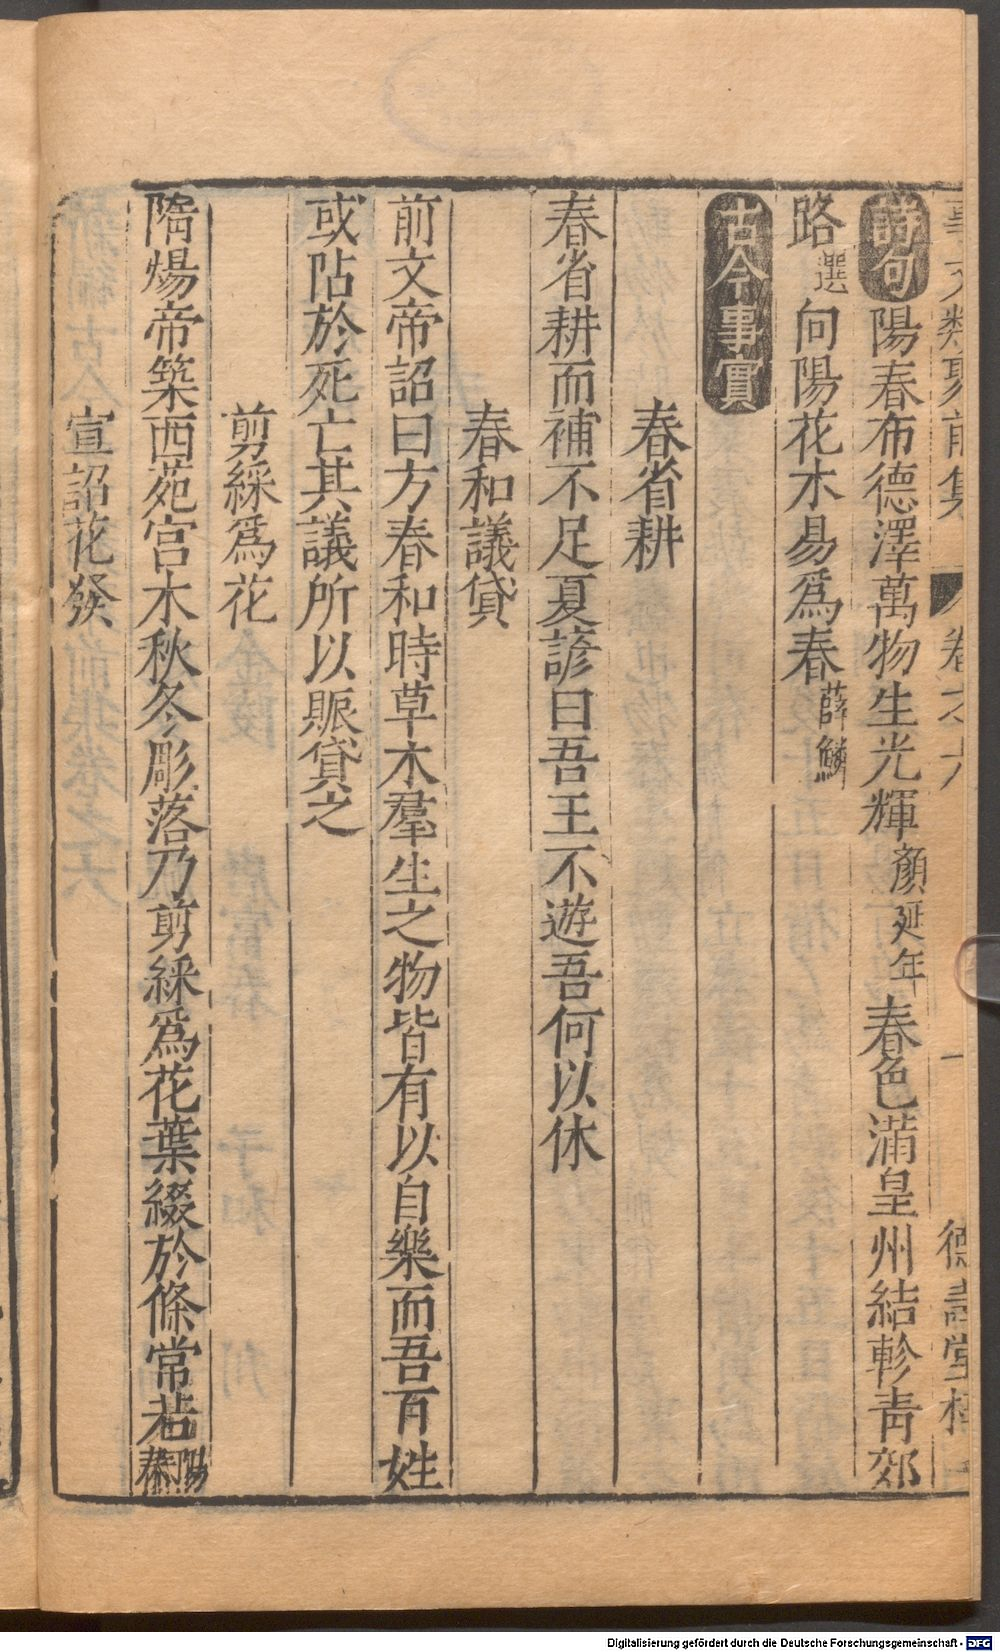 事文類聚前集 卷之六 一 德壽堂梓
詩句 陽春布德澤萬物生光輝 顏延年 春色滿皇州結軫青郊
路 選 向陽花木易爲春 薛鱗
古今事實
春省耕
春省耕而補不足夏諺曰吾王不遊吾何以休
春和議貸
前文帝詔曰方春和時草木羣生之物皆有以自樂而吾百姓
或阽於死亡其議所以賑貸之
剪綵爲花
隋煬帝築西苑宮木秋冬彫落乃剪綵爲花葉綴於條常若陽春
宣詔花發
Digitalisierung gefördert durch die Deutsche Forschungsgemeinschaft - DFG